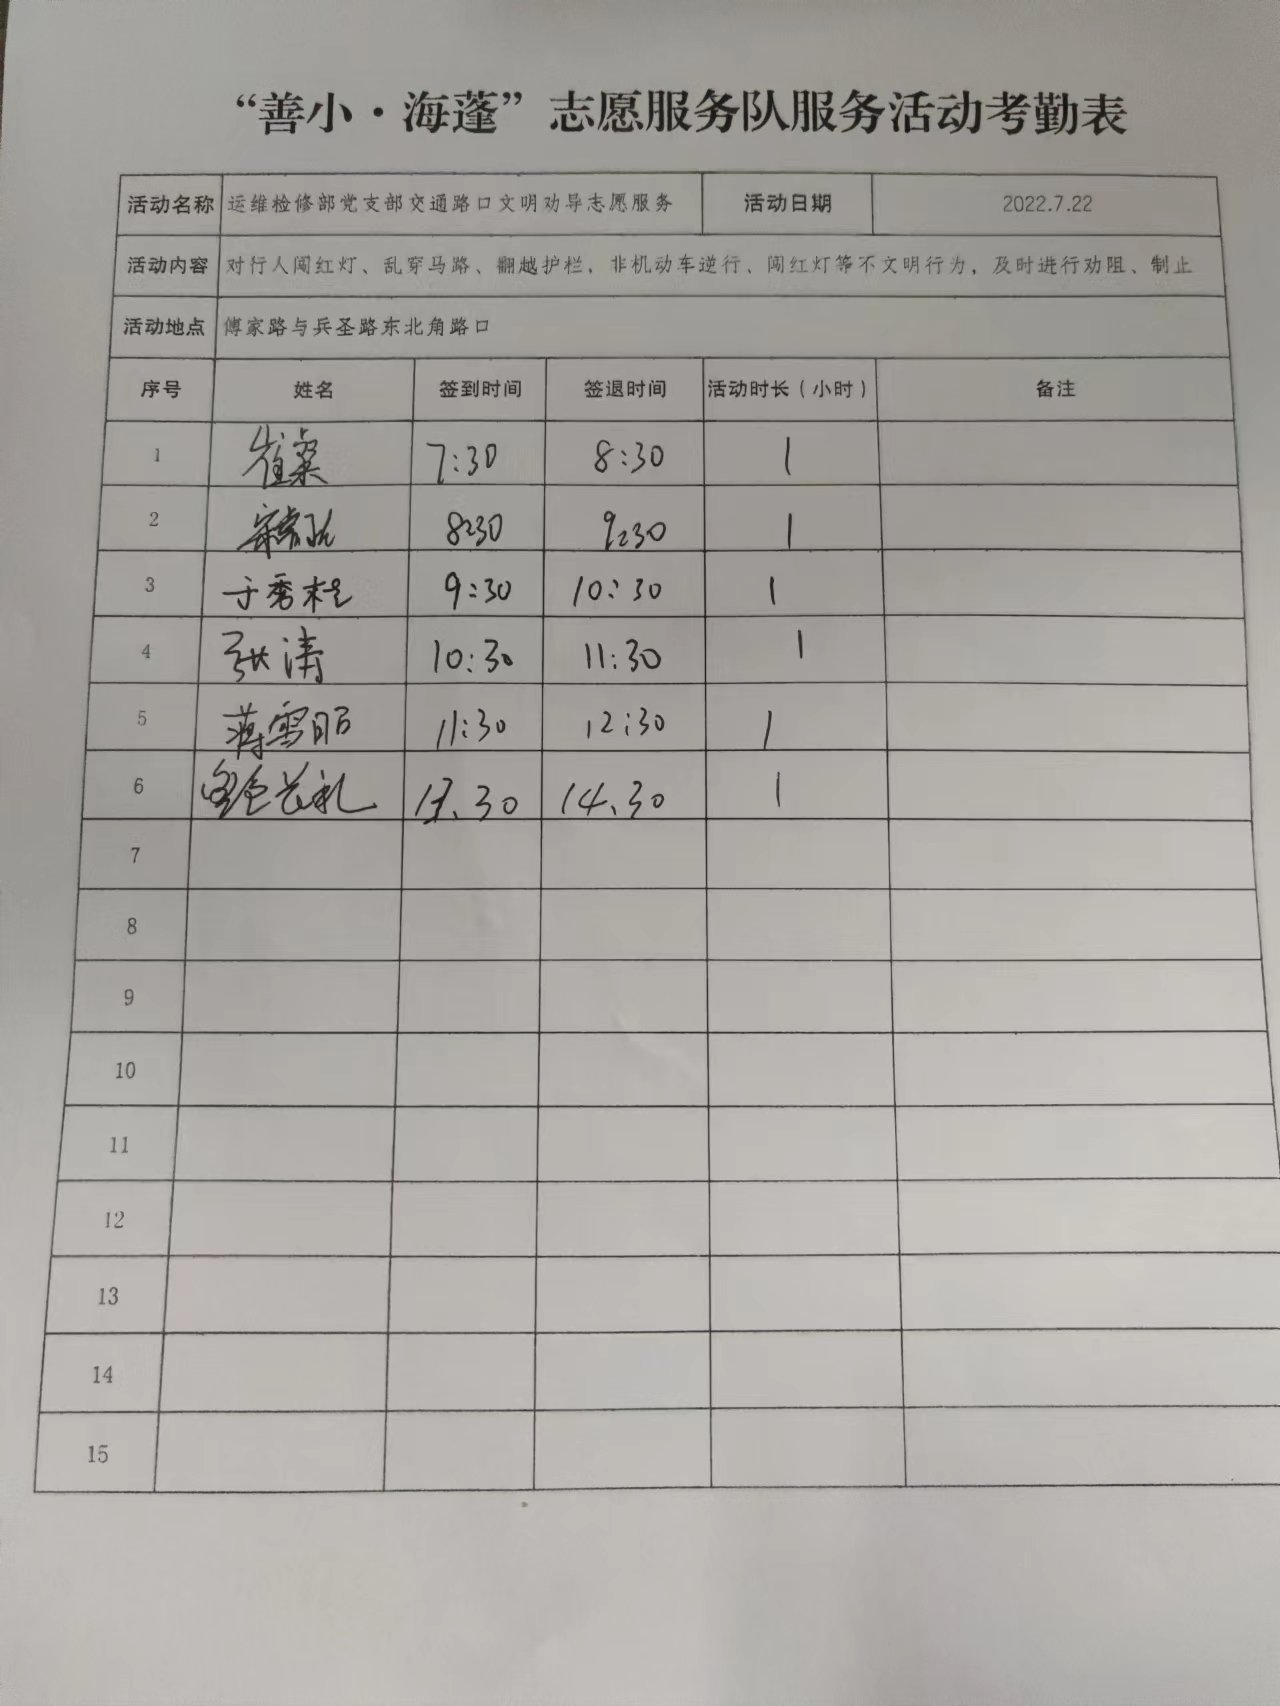 “善小·海蓬”志愿服务队服务活动考勤表
活动名称 运维检修部党支部交通路口文明劝导志愿服务 活动日期 2022.7.22
活动内容 对行人闯红灯、乱穿马路、翻越护栏，非机动车逆行、闯红灯等不文明行为，及时进行劝阻、制止
活动地点 傅家路与兵圣路东北角路口
序号 姓名 签到时间 签退时间 活动时长（小时） 备注
1 崔燊 7:30 8:30 1
2 8:30 9:30 1
3 于秀桂 9:30 10:30 1
4 张涛 10:30 11:30 1
5 薄雪丽 11:30 12:30 1
6 13.30 14.30 1
7
8
9
10
11
12
13
14
15